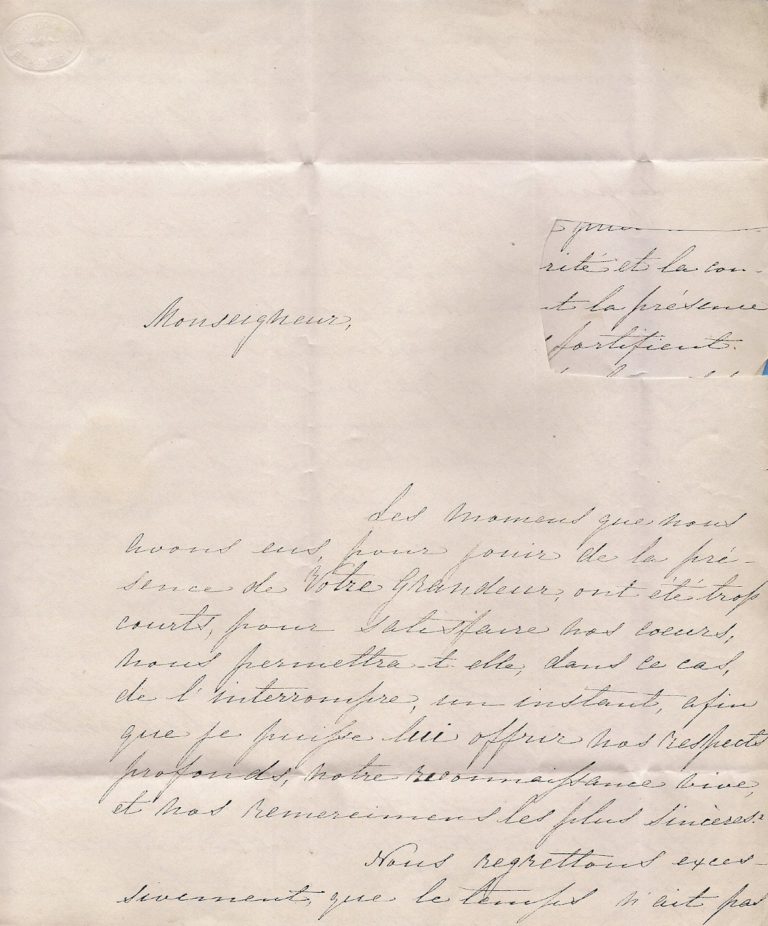 rité et la con-
t la présence
fortifient.
Monseigneur,
Les momens que nous
avons eus, pour jouir de la pré-
sence de Votre Grandeur, ont été trop
courts, pour satisfaire nos coeurs,
nous permettra-t-elle, dans ce cas,
de l'interrompre, un instant, afin
que je puisse lui offrir nos respects
profonds, notre reconnaissance vive,
et nos remercimens les plus sincères.
Nous regrettons exces-
sivement, que le temps n'ait pas